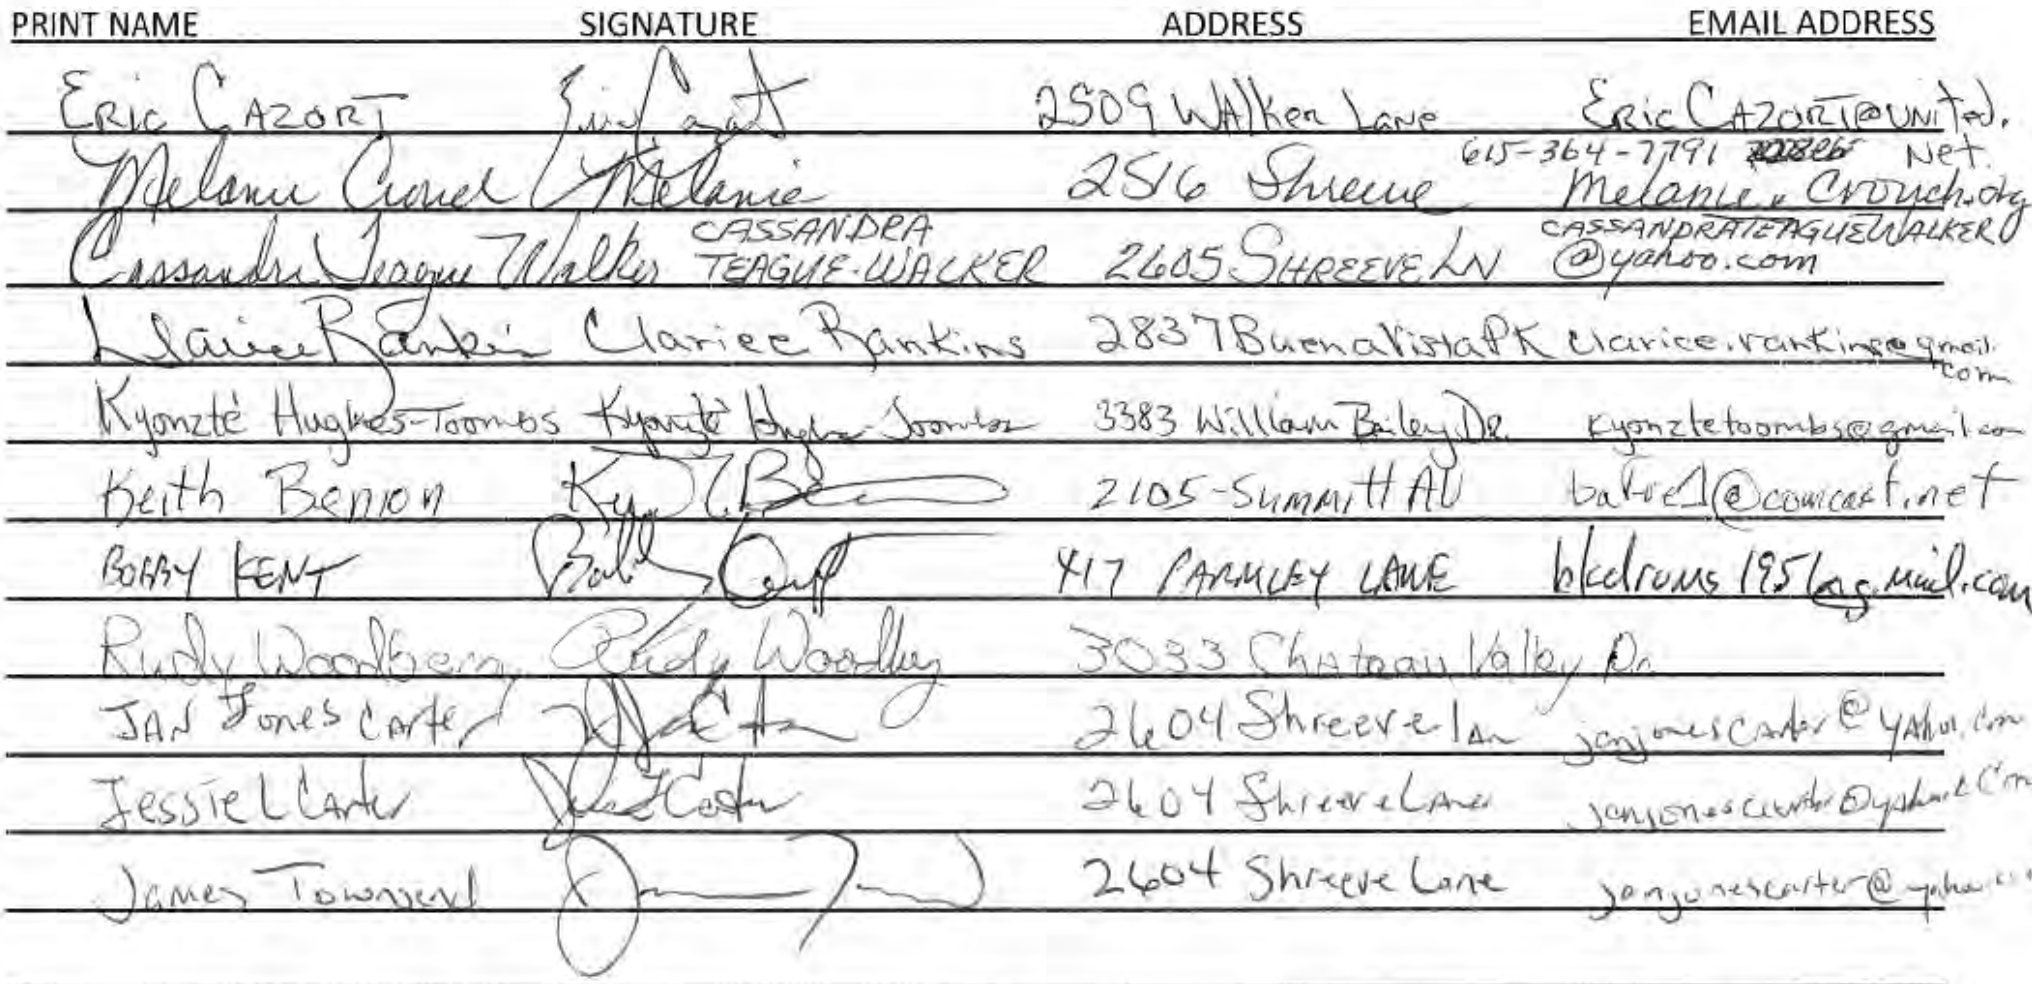 PRINT NAME SIGNATURE ADDRESS EMAIL ADDRESS
ERIC CAZORT Eric Cazort 2509 WAlker Lane ERIC CAZORT@UNITed.
615-364-7791 Net.
Melanie Melanie 2516 Shreeve Melanie.Crouch.org
CASSANDRA CASSANDRATEAGUEWALKER
Cassandra Teague Walker TEAGUE-WALKER 2605 SHREEVE LN @yahoo.com
Clarice Rankins Clarice Rankins 2837 Buena Vista PK clarice.rankins@gmail.
com
Kyonzté Hughes-Toombs Kyonzté Hughes-Toombs 3383 William Bailey Dr. kyonztetoombs@gmail.com
Keith Benion 2105-Summitt AV @comcast.net
BOBBY KENT Bobby Kent 417 PARMLEY LANE bkdrums1951@g.mail.com
Rudy Woodberry Rudy Woodbery 3033 Chateau Valley Dr.
JAN Jones Carter 2604 Shreeve lan janjonescarter@yahoo.com
Jessie L Carter 2604 Shreeve Lane janjonescarter@yahoo.com
James Townsend 2604 Shreeve Lane janjonescarter@yahoo.com